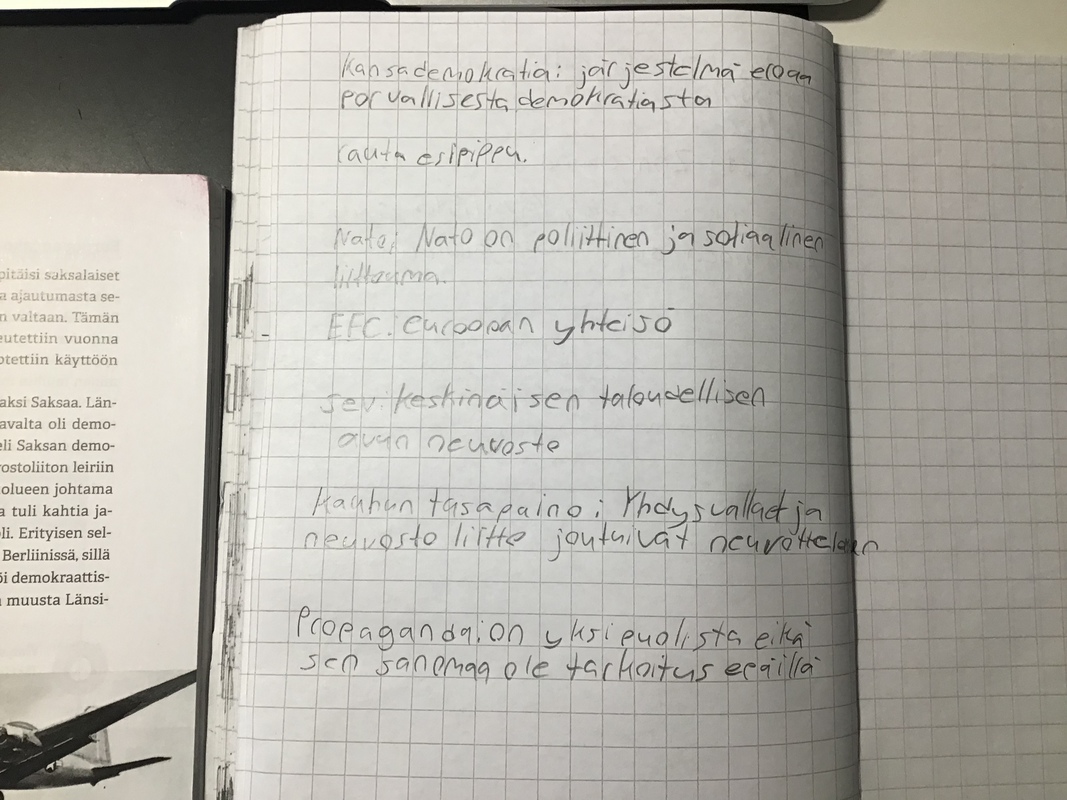 pitäisi saksalaiset
a ajautumasta se-
n valtaan. Tämän
eutettiin vuonna
otettiin käyttöön
aksi Saksaa. Län-
avalta oli demo-
eli Saksan demo-
ostoliiton leiriin
olueen johtama
a tuli kahtia ja-
oli. Erityisen sel-
Berliinissä, sillä
öi demokraattis-
muusta Länsi-
Kansademokratia: järjestelmä eroaa
porvallisesta demokratiasta
rauta esipippu.
Nato: Nato on poliittinen ja sotiaalinen
liittouma.
EEC: euroopan yhteisö
sev: keskinäisen taloudellisen
avun neuvosto
Kauhun tasapaino: Yhdysvallat ja
neuvosto liitto joutuivat neuvottelaan
Propaganda: on yksipuolista eikä
sen sanomaa ole tarkoitus epäillä